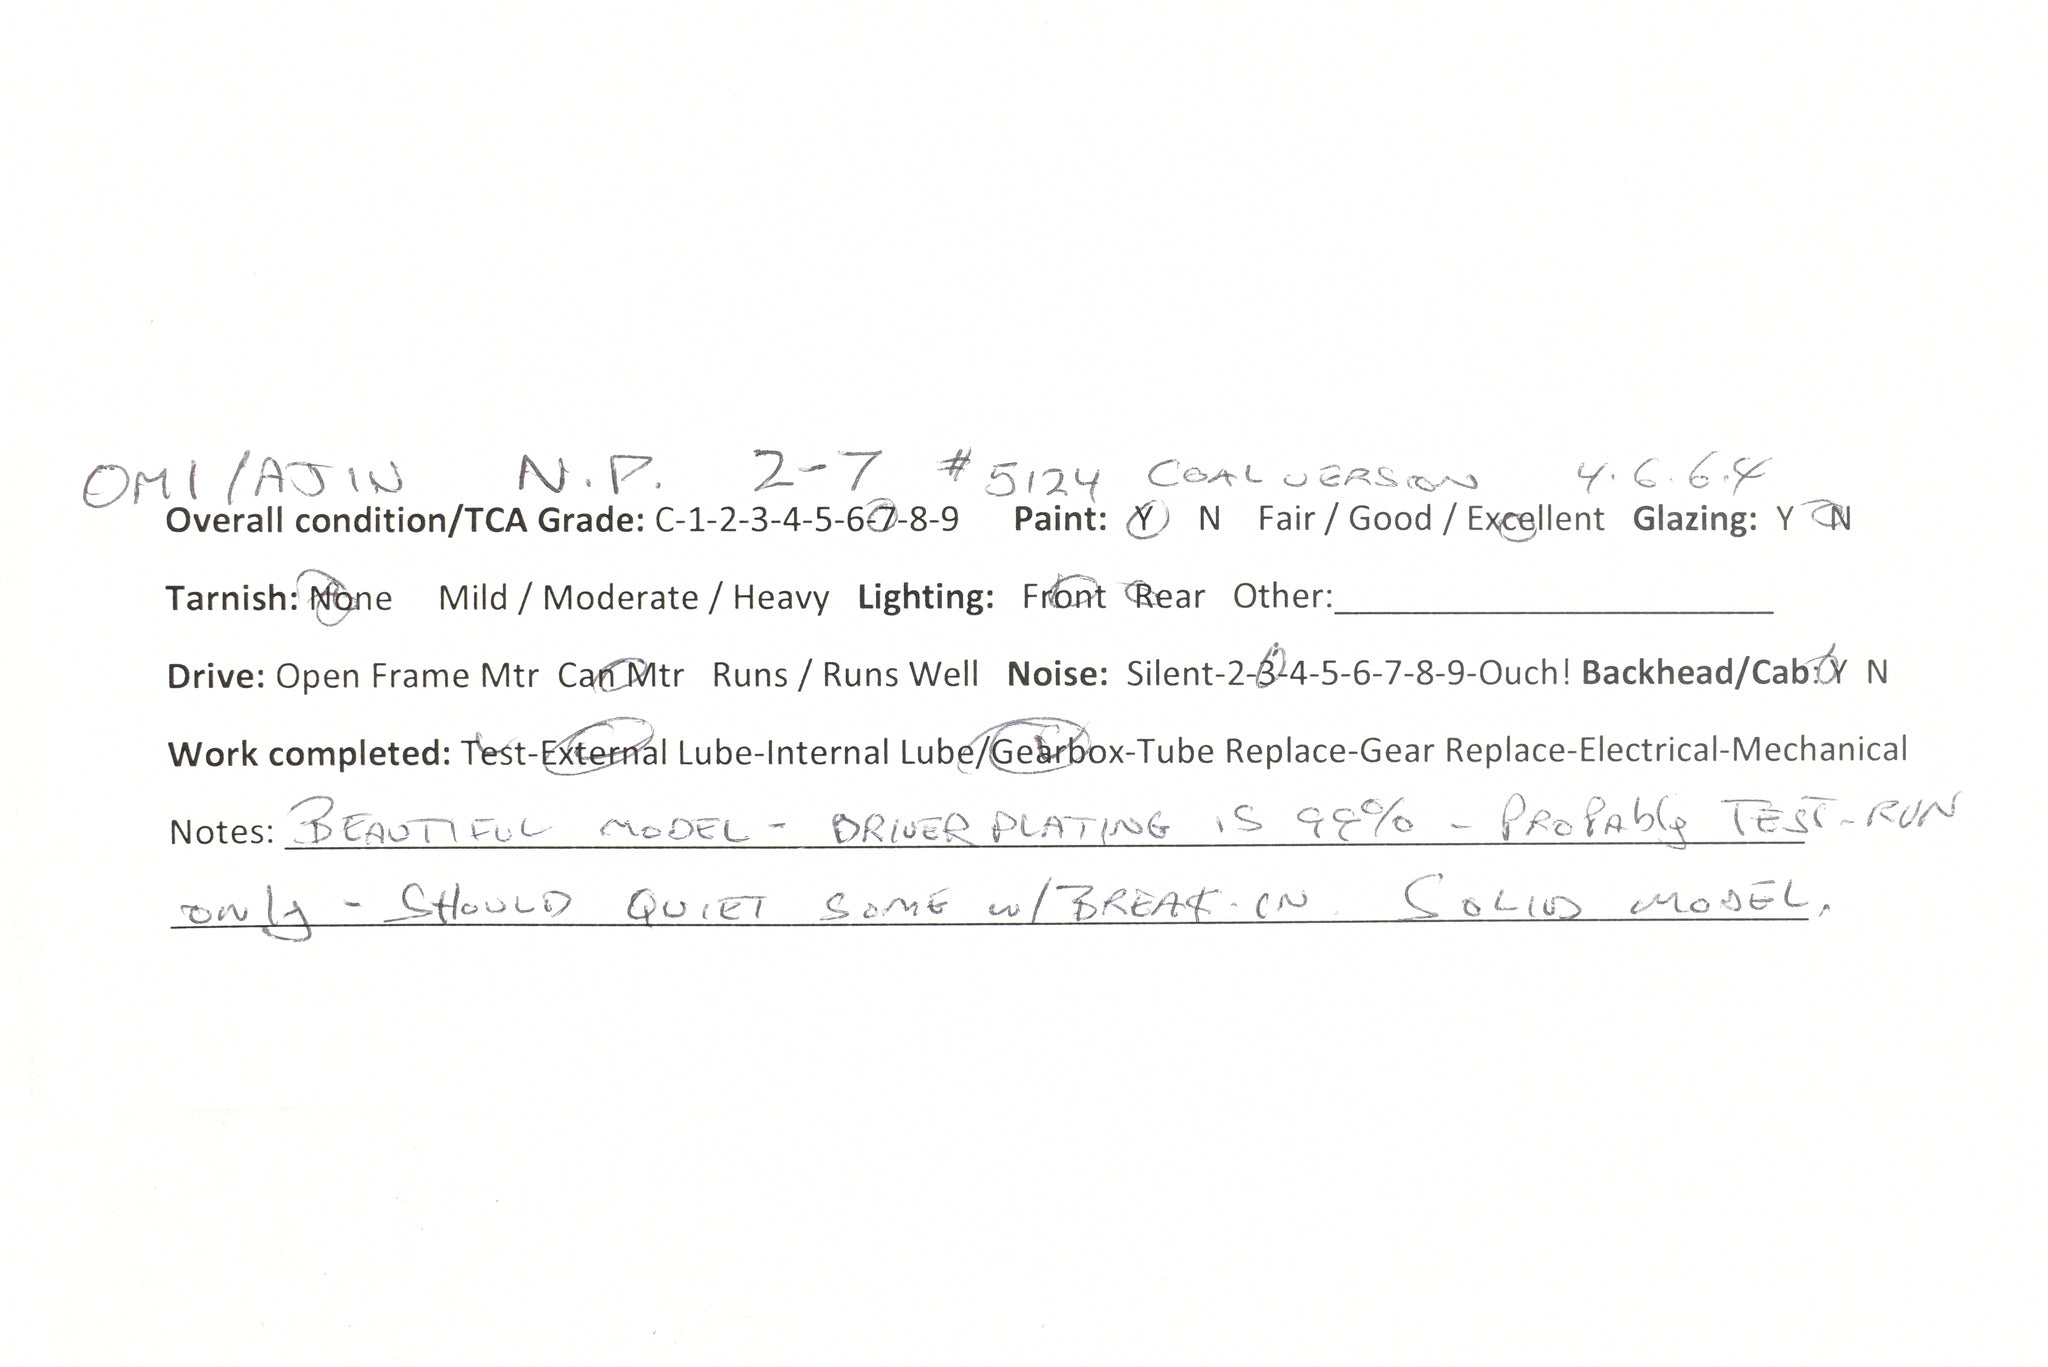 OMI/AJIN N.P. 2-7 #5124 COAL VERSION 4.6.6.4
Overall condition/TCA Grade: C-1-2-3-4-5-6-7-8-9 Paint: Y N Fair / Good / Excellent Glazing: Y N
Tarnish: None Mild / Moderate / Heavy Lighting: Front Rear Other:
Drive: Open Frame Mtr Can Mtr Runs / Runs Well Noise: Silent-2-3-4-5-6-7-8-9-Ouch! Backhead/Cab: Y N
Work completed: Test-External Lube-Internal Lube/Gearbox-Tube Replace-Gear Replace-Electrical-Mechanical
Notes: BEAUTIFUL MODEL - DRIVER PLATING IS 99% - PROPAbly TEST-RUN
only - SHOULD QUIET SOME w/BREAK-IN. SOLID MODEL.